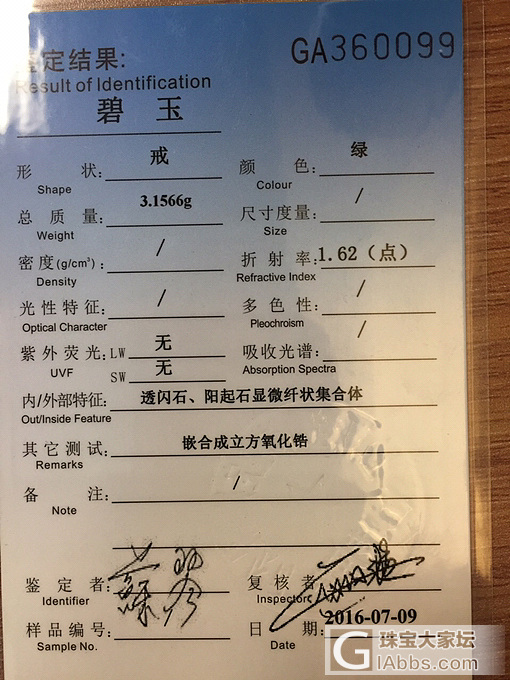 鉴定结果: GA360099
Result of Identification
碧 玉
形 状: 戒 颜 色: 绿
Shape Colour
总 质 量: 3.1566g 尺寸度量: /
Weight Size
密度(g/cm³): / 折 射 率: 1.62（点）
Density Refractive Index
光性特征: / 多 色 性: /
Optical Character Pleochroism
紫外荧光: LW 无 吸收光谱: /
UVF SW 无 Absorption Spectra
内/外部特征: 透闪石、阳起石显微纤状集合体
Out/Inside Feature
其它测试: 嵌合成立方氧化锆
Remarks
备 注: /
Note
鉴 定 者: 复 核 者:
Identifier Inspector
样品编号: 日 期: 2016-07-09
Sample No. Date
G 珠宝大家坛
iAbbs.com